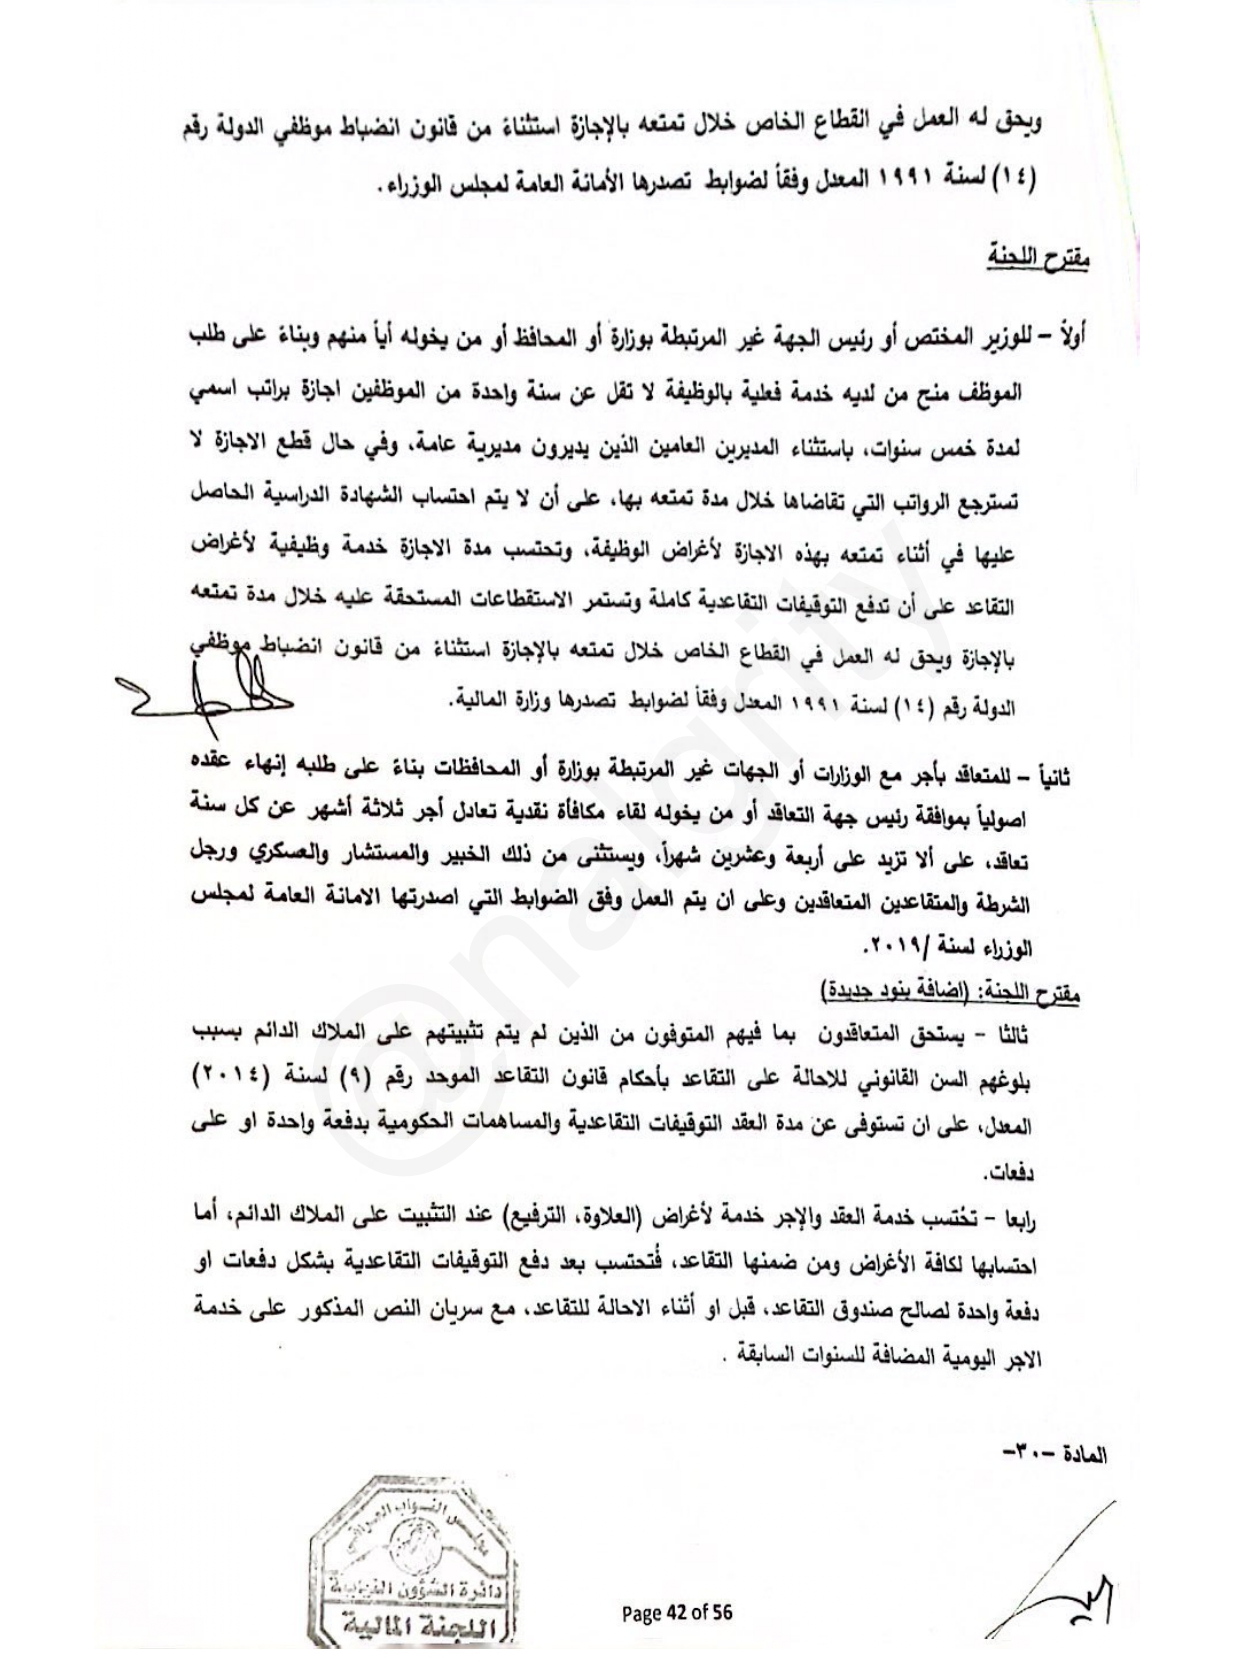 ويحق له العمل في القطاع الخاص خلال تمتعه بالإجازة استثناءً من قانون انضباط موظفي الدولة رقم
(١٤) لسنة ١٩٩١ المعدل وفقاً لضوابط تصدرها الأمانة العامة لمجلس الوزراء.
مقترح اللجنة
أولاً – للوزير المختص أو رئيس الجهة غير المرتبطة بوزارة أو المحافظ أو من يخوله أياً منهم وبناءً على طلب
الموظف منح من لديه خدمة فعلية بالوظيفة لا تقل عن سنة واحدة من الموظفين اجازة براتب اسمي
لمدة خمس سنوات، باستثناء المديرين العامين الذين يديرون مديرية عامة، وفي حال قطع الاجازة لا
تسترجع الرواتب التي تقاضاها خلال مدة تمتعه بها، على أن لا يتم احتساب الشهادة الدراسية الحاصل
عليها في أثناء تمتعه بهذه الاجازة لأغراض الوظيفة، وتحتسب مدة الاجازة خدمة وظيفية لأغراض
التقاعد على أن تدفع التوقيفات التقاعدية كاملة وتستمر الاستقطاعات المستحقة عليه خلال مدة تمتعه
بالإجازة ويحق له العمل في القطاع الخاص خلال تمتعه بالإجازة استثناءً من قانون انضباط موظفي
الدولة رقم (١٤) لسنة ١٩٩١ المعدل وفقاً لضوابط تصدرها وزارة المالية.
ثانياً – للمتعاقد بأجر مع الوزارات أو الجهات غير المرتبطة بوزارة أو المحافظات بناءً على طلبه إنهاء عقده
اصولياً بموافقة رئيس جهة التعاقد أو من يخوله لقاء مكافأة نقدية تعادل أجر ثلاثة أشهر عن كل سنة
تعاقد، على ألا تزيد على أربعة وعشرين شهراً، ويستثنى من ذلك الخبير والمستشار والعسكري ورجل
الشرطة والمتقاعدين المتعاقدين وعلى ان يتم العمل وفق الضوابط التي اصدرتها الامانة العامة لمجلس
الوزراء لسنة /٢٠١٩.
مقترح اللجنة: (اضافة بنود جديدة)
ثالثا – يستحق المتعاقدون بما فيهم المتوفون من الذين لم يتم تثبيتهم على الملاك الدائم بسبب
بلوغهم السن القانوني للاحالة على التقاعد بأحكام قانون التقاعد الموحد رقم (٩) لسنة (٢٠١٤)
المعدل، على ان تستوفى عن مدة العقد التوقيفات التقاعدية والمساهمات الحكومية بدفعة واحدة او على
دفعات.
رابعا – تحُتسب خدمة العقد والإجر خدمة لأغراض (العلاوة، الترفيع) عند التثبيت على الملاك الدائم، أما
احتسابها لكافة الأغراض ومن ضمنها التقاعد، فُتحتسب بعد دفع التوقيفات التقاعدية بشكل دفعات او
دفعة واحدة لصالح صندوق التقاعد، قبل او أثناء الاحالة للتقاعد، مع سريان النص المذكور على خدمة
الاجر اليومية المضافة للسنوات السابقة .
المادة –٣٠–
مجلس النواب العراقي
دائرة الشؤون النيابية
اللجنة المالية
Page 42 of 56
@nalgrity